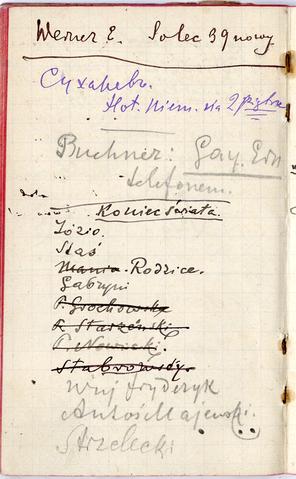 Werner E. Solec 39 nowy
Hot. Niem. na 2 piętrze
Buchner: Gay. Edn
telefonem.
Koniec świata.
Józio.
Staś
Mania. Rodzice.
Gabryni
P. Grochowska
K. Starzeński.
P. Nowicki.
Stabrowscy.
Wuj Fryderyk
Antoś Majewski.
Strzelecki